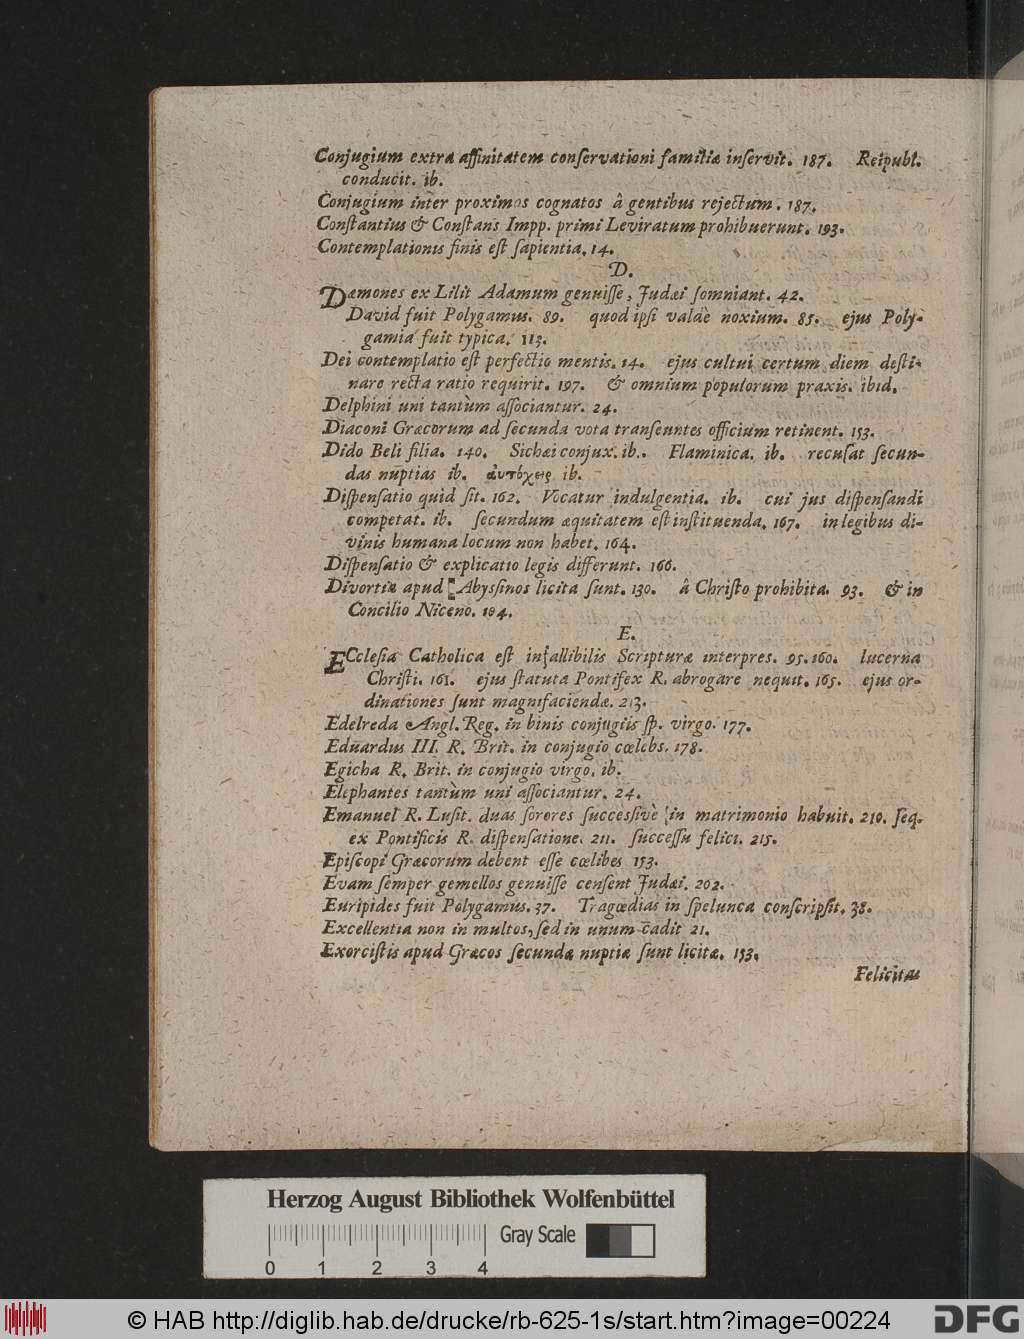 Conjugium extra affinitatem conſervationi familiæ inſervit. 187. Reipubl.
conducit. ib.
Conjugium inter proximos cognatos â gentibus rejectum. 187.
Conſtantius & Conſtans Impp. primi Leviratum prohibuerunt. 193.
Contemplationis finis eſt ſapientia. 14.
D.
Dæmones ex Lilit Adamum genuiſſe, Judæi ſomniant. 42.
David fuit Polygamus. 89. quod ipſi valdè noxium. 85. ejus Poly-
gamia fuit typica. 113.
Dei contemplatio eſt perfectio mentis. 14. ejus cultui certum diem deſti-
nare recta ratio requirit. 197. & omnium populorum praxis. ibid.
Delphini uni tantùm aſſociantur. 24.
Diaconi Græcorum ad ſecunda vota tranſeuntes officium retinent. 153.
Dido Beli filia. 140. Sichæi conjux. ib. Flaminica. ib. recuſat ſecun-
das nuptias ib. ib.
Diſpenſatio quid ſit. 162. Vocatur indulgentia. ib. cui jus diſpenſandi
competat. ib. ſecundum æquitatem eſt inſtituenda. 167. in legibus di-
vinis humana locum non habet. 164.
Diſpenſatio & explicatio legis differunt. 166.
Divortia apud Abyſſinos licita ſunt. 130. â Chriſto prohibita. 93. & in
Concilio Niceno. 104.
E.
ECcleſia Catholica eſt infallibilis Scripturæ interpres. 95. 160. lucerna
Chriſti. 161. ejus ſtatuta Pontifex R. abrogare nequit. 165. ejus or-
dinationes ſunt magnifaciendæ. 213.
Edelreda Angl. Reg. in binis conjugiis ſp. virgo. 177.
Eduardus III. R. Brit. in conjugio cœlebs. 178.
Egicha R. Brit. in conjugio virgo. ib.
Elephantes tantùm uni aſſociantur. 24.
Emanuel R. Luſit. duas ſorores ſucceſſivè in matrimonio habuit. 210. ſeq.
ex Pontificis R. diſpenſatione. 211. ſucceſſu felici. 215.
Epiſcopi Græcorum debent eſſe cœlibes 153.
Evam ſemper gemellos genuiſſe cenſent Judæi. 202.
Euripides fuit Polygamus. 37. Tragœdias in ſpelunca conſcripſit. 38.
Excellentia non in multos, ſed in unum cadit 21.
Exorciſtis apud Græcos ſecundæ nuptiæ ſunt licitæ. 153.
Felicitas
Herzog August Bibliothek Wolfenbüttel
Gray Scale
0 1 2 3 4
© HAB http://diglib.hab.de/drucke/rb-625-1s/start.htm?image=00224
DFG